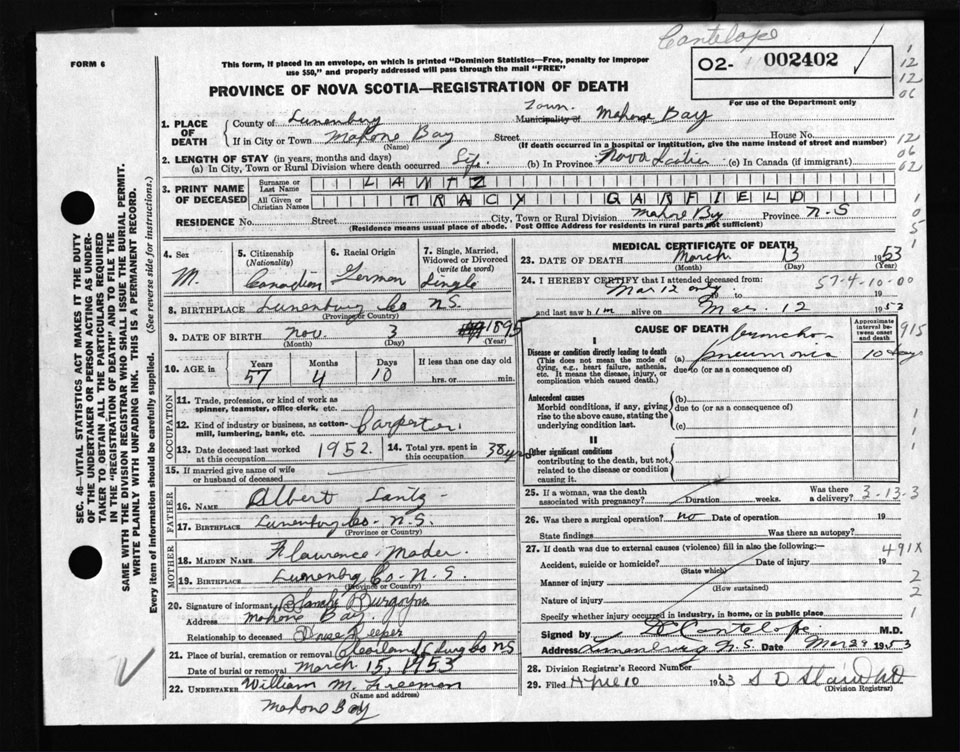 Cantelope
FORM 6
This form, if placed in an envelope, on which is printed "Dominion Statistics—Free, penalty for improper
use $50," and properly addressed will pass through the mail "FREE"
02- 002402
For use of the Department only
PROVINCE OF NOVA SCOTIA—REGISTRATION OF DEATH
1. PLACE OF DEATH
County of Lunenburg Town Municipality of Mahone Bay
If in City or Town Mahone Bay Street House No.
(Name) (If death occurred in a hospital or institution, give the name instead of street and number)
2. LENGTH OF STAY (in years, months and days)
(a) In City, Town or Rural Division where death occurred Life (b) In Province Nova Scotia (c) In Canada (if immigrant)
3. PRINT NAME OF DECEASED
Surname or Last Name LANTZ
All Given or Christian Names TRACY GARFIELD
RESIDENCE No. Street City, Town or Rural Division Mahone Bay Province N-S
(Residence means usual place of abode. Post Office Address for residents in rural parts not sufficient)
4. Sex M.
5. Citizenship (Nationality) Canadian
6. Racial Origin German
7. Single, Married, Widowed or Divorced (write the word) Single
8. BIRTHPLACE Lunenburg Co N.S.
(Province or Country)
9. DATE OF BIRTH Nov. 3 1895
(Month) (Day) (Year)
10. AGE in Years 57 Months 4 Days 10 If less than one day old hrs. or min.
OCCUPATION
11. Trade, profession, or kind of work as spinner, teamster, office clerk, etc.
12. Kind of industry or business, as cotton-mill, lumbering, bank, etc. Carpenter
13. Date deceased last worked at this occupation 1952.
14. Total yrs. spent in this occupation 38 yrs
15. If married give name of wife or husband of deceased
FATHER
16. NAME Albert Lantz
17. BIRTHPLACE Lunenburg Co- N.S.
(Province or Country)
MOTHER
18. MAIDEN NAME Flawrence Mader.
19. BIRTHPLACE Lunenbrg Co-N.S.
(Province or Country)
20. Signature of informant Blanche Burgoyne
Address Mahone Bay.
Relationship to deceased House Keeper
21. Place of burial, cremation or removal Lung Co NS
Date of burial or removal March 15, 1953
22. UNDERTAKER William M. Freeman
(Name and address)
Mahone Bay
MEDICAL CERTIFICATE OF DEATH
23. DATE OF DEATH March 13 1953
(Month) (Day) (Year)
24. I HEREBY CERTIFY that I attended deceased from: 57-4-10-00
Mar 12 only 19 to 19
and last saw him alive on Mar. 12 1953
CAUSE OF DEATH
Approximate interval between onset and death
915
I
Disease or condition directly leading to death
(This does not mean the mode of dying, e.g., heart failure, asthenia, etc. It means the disease, injury, or complication which caused death.)
(a) broncho pneumonia 10 days
due to (or as a consequence of)
Antecedent causes
Morbid conditions, if any, giving rise to the above cause, stating the underlying condition last.
(b)
due to (or as a consequence of)
(c)
II
Other significant conditions
contributing to the death, but not related to the disease or condition causing it.
25. If a woman, was the death associated with pregnancy? Duration weeks. Was there a delivery? 3-13-3
26. Was there a surgical operation? no Date of operation 19
State findings Was there an autopsy?
27. If death was due to external causes (violence) fill in also the following:— 491X
Accident, suicide or homicide? Date of injury 19
(State which)
Manner of injury
(How sustained)
Nature of injury
Specify whether injury occurred in industry, in home, or in public place
Signed by Cantelope M.D.
Address Lunenburg N.S. Date Mar 29 1953
28. Division Registrar's Record Number
29. Filed April 10 1953 S D
(Division Registrar)
SEC. 46—VITAL STATISTICS ACT MAKES IT THE DUTY
OF THE UNDERTAKER OR PERSON ACTING AS UNDER-
TAKER TO OBTAIN ALL THE PARTICULARS REQUIRED
IN THE "REGISTRATION OF DEATH" AND TO FILE THE
SAME WITH THE DIVISION REGISTRAR WHO SHALL ISSUE THE BURIAL PERMIT.
WRITE PLAINLY WITH UNFADING INK. THIS IS A PERMANENT RECORD.
Every item of information should be carefully supplied. (See reverse side for instructions.)
1
12
12
06
12
06
02
1
0
5
1
1
1
1
2
2
1